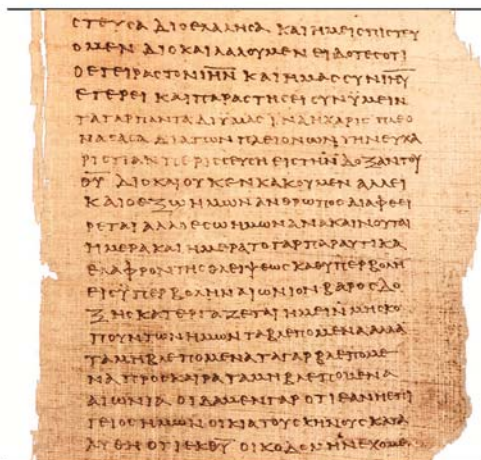 ϹΤΕΥϹΑ ΔΙΟ ΕΛΑΛΗϹΑ ΚΑΙ ΗΜΕΙϹ ΠΙϹΤΕΥ
ΟΜΕΝ ΔΙΟ ΚΑΙ ΛΑΛΟΥΜΕΝ ΕΙΔΟΤΕϹ ΟΤΙ
Ο ΕΓΕΙΡΑϹ ΤΟΝ ΙΗΝ ΚΑΙ ΗΜΑϹ ϹΥΝ ΙΗΥ
ΕΓΕΡΕΙ ΚΑΙ ΠΑΡΑϹΤΗϹΕΙ ϹΥΝ ΫΜΕΙΝ
ΤΑ ΓΑΡ ΠΑΝΤΑ ΔΙ ΥΜΑϹ ΙΝΑ Η ΧΑΡΙϹ ΠΛΕΟ
ΝΑϹΑϹΑ ΔΙΑ ΤΩΝ ΠΛΕΙΟΝΩΝ ΤΗΝ ΕΥΧΑ
ΡΙϹΤΙΑΝ ΠΕΡΙϹϹΕΥϹΗ ΕΙϹ ΤΗΝ ΔΟΞΑΝ ΤΟΥ
ΘΥ ΔΙΟ ΚΑΙ ΟΥΚ ΕΝΚΑΚΟΥΜΕΝ ΑΛΛ ΕΙ
ΚΑΙ Ο ΕΞΩ ΗΜΩΝ ΑΝΘΡΩΠΟϹ ΔΙΑΦΘΕΙ
ΡΕΤΑΙ ΑΛΛ Ο ΕϹΩ ΗΜΩΝ ΑΝΑΚΑΙΝΟΥΤΑΙ
ΗΜΕΡΑ ΚΑΙ ΗΜΕΡΑ ΤΟ ΓΑΡ ΠΑΡΑΥΤΙΚΑ
ΕΛΑΦΡΟΝ ΤΗϹ ΘΛΕΙΨΕΩϹ ΚΑΘ ΥΠΕΡΒΟΛΗ
ΕΙϹ ΫΠΕΡΒΟΛΗΝ ΑΙΩΝΙΟΝ ΒΑΡΟϹ ΔΟ
ΞΗϹ ΚΑΤΕΡΓΑΖΕΤΑΙ ΗΜΕΙΝ ΜΗ ϹΚΟ
ΠΟΥΝΤΩΝ ΗΜΩΝ ΤΑ ΒΛΕΠΟΜΕΝΑ ΑΛΛΑ
ΤΑ ΜΗ ΒΛΕΠΟΜΕΝΑ ΤΑ ΓΑΡ ΒΛΕΠΟΜΕ
ΝΑ ΠΡΟϹΚΑΙΡΑ ΤΑ ΜΗ ΒΛΕΠΟΜΕΝΑ
ΑΙΩΝΙΑ ΟΙΔΑΜΕΝ ΓΑΡ ΟΤΙ ΕΑΝ Η ΕΠΙ
ΓΕΙΟϹ ΗΜΩΝ ΟΙΚΙΑ ΤΟΥ ϹΚΗΝΟΥϹ ΚΑΤΑ
ΛΥΘΗ ΟΤΙ ΕΚ ΘΥ ΟΙΚΟΔΟΜΗΝ ΕΧΟΜΕ